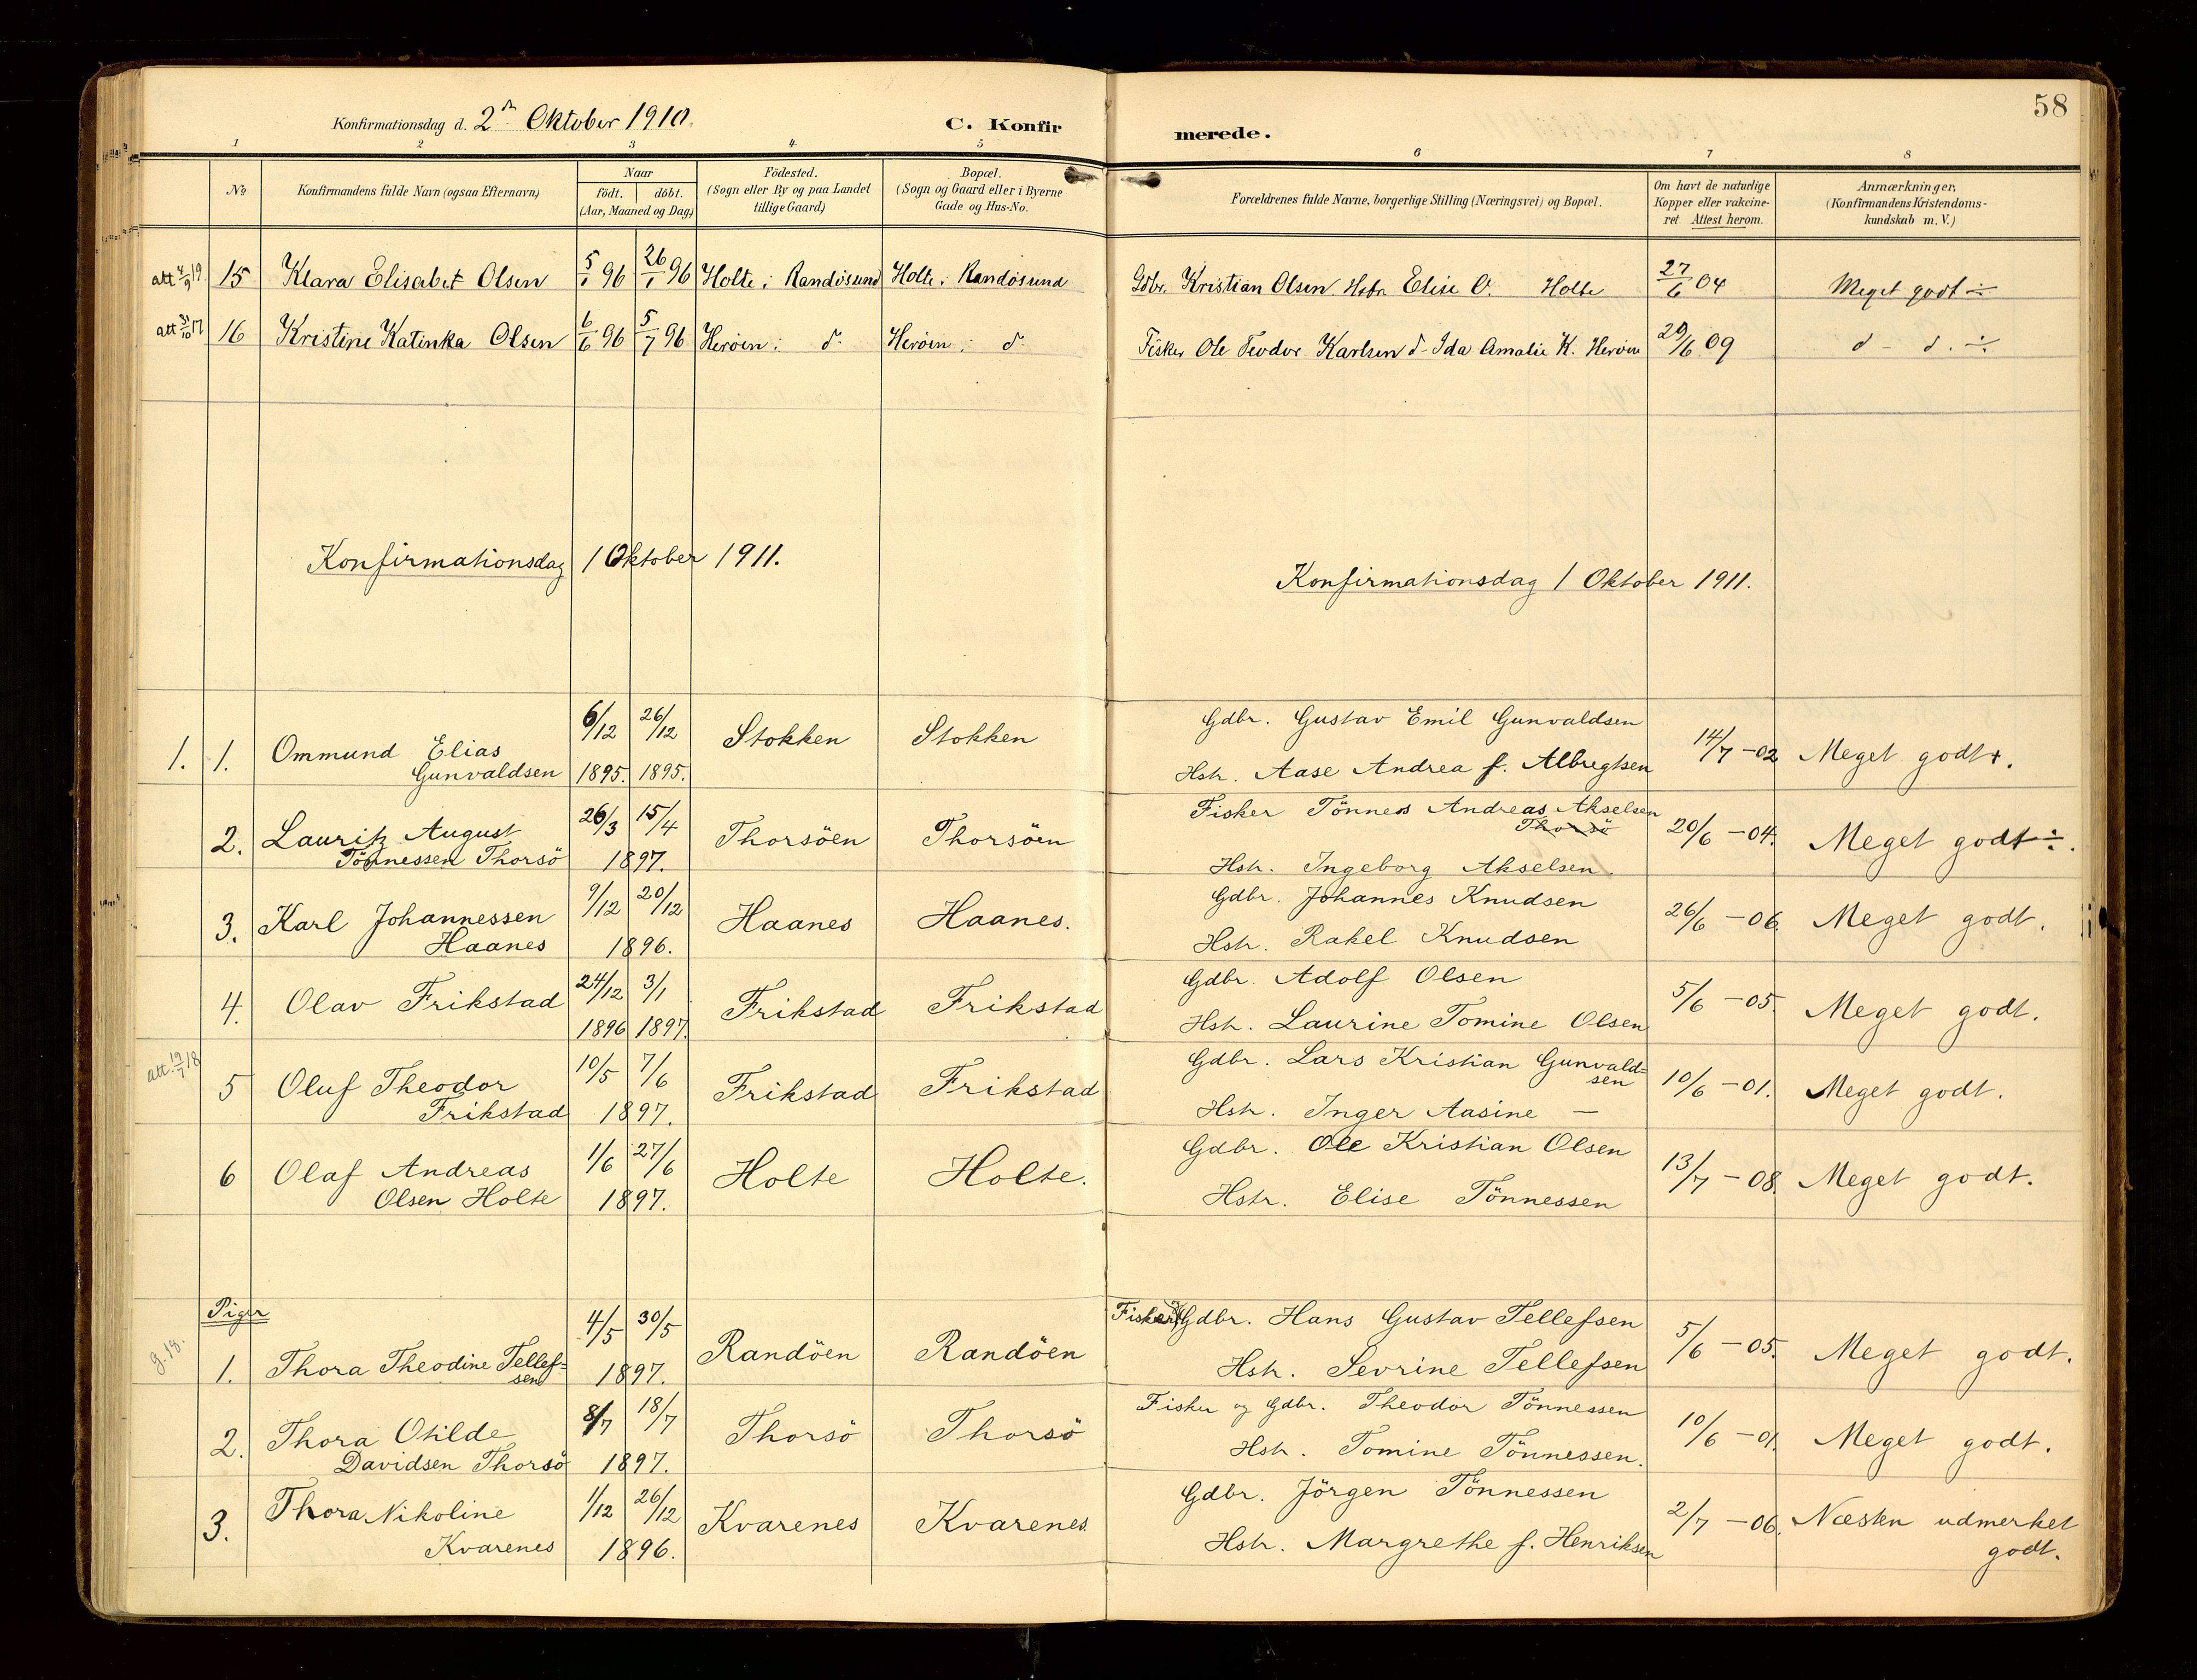 58
Konfirmationsdag d. 2den Oktober 1910.
C. Konfirmerede.
1 2 3 4 5 6 7 8
No
Konfirmandens fulde Navn (ogsaa Efternavn)
Naar
födt. döbt.
(Aar, Maaned og Dag)
Födested.
(Sogn eller By og paa Landet
tillige Gaard)
Bopæl.
(Sogn og Gaard eller i Byerne
Gade og Hus-No.
Forældrenes fulde Navne, borgerlige Stilling (Næringsvei) og Bopæl.
Om havt de naturlige
Kopper eller vakcine-
ret Attest herom.
Anmærkninger.
(Konfirmandens Kristendoms-
kundskab m. V.)
att 4/9 19 15 Klara Elisabet Olsen 5/1 96 26/1 96 Holte i Randösund Holte i Randösund Gdbr. Kristian Olsen Hstr. Elise O. Holte 27/6 04 Meget godt ÷
att 31/10 17 16 Kristine Katinka Olsen 6/6 96 5/7 96 Heröen i d- Heröen i d- Fisker Ole Teodor Karlsen d- Ida Amalie K. Heröen 29/6 09 d - d. ÷
Konfirmationsdag 1 Oktober 1911.
Konfirmationsdag 1 Oktober 1911.
1. 1. Ommund Elias
Gunvaldsen
6/12 1895. 26/12 1895. Stokken Stokken
Gdbr. Gustav Emil Gunvaldsen
Hstr. Aase Andrea f. Albregtsen
14/7 - 02 Meget godt +.
2. Lauritz August
Tönnessen Thorsö
26/3 15/4 1897. Thorsöen Thorsöen
Fisker Tönnes Andreas Akselsen
Thorsö
Hstr. Ingeborg Akselsen.
20/6 - 04. Meget godt ÷.
3. Karl Johannessen
Haanes
9/12 20/12 1896. Haanes Haanes.
Gdbr. Johannes Knudsen
Hstr. Rakel Knudsen
26/6 - 06. Meget godt.
4. Olav Frikstad
24/12 1896 3/1 1897. Frikstad Frikstad
Gdbr. Adolf Olsen
Hstr. Laurine Tomine Olsen
5/6 - 05. Meget godt.
att. 19/7 18 5 Oluf Theodor
Frikstad
10/5 7/6 1897. Frikstad Frikstad
Gdbr. Lars Kristian Gunvald=
sen
Hstr. Inger Aasine —
10/6 - 01. Meget godt.
6 Olaf Andreas
Olsen Holte
1/6 27/6 1897. Holte Holte.
Gdbr. Ole Kristian Olsen
Hstr. Elise Tönnessen
13/7 - 08. Meget godt.
Piger
g. 18. 1. Thora Theodine Tellef=
sen
4/5 30/5 1897. Randöen Randöen
Fisker og Gdbr. Hans Gustav Tellefsen
Hstr. Sevrine Tellefsen
5/6 - 05. Meget godt.
2. Thora Otilde
Davidsen Thorsö
8/7 18/7 1897. Thorsö Thorsö
Fisker og Gdbr. Theodor Tönnessen
Hstr. Tomine Tönnessen.
10/6 - 01. Meget godt.
3. Thora Nikoline
Kvarenes
1/12 26/12 1896. Kvarenes Kvarenes.
Gdbr. Jörgen Tönnessen
Hstr. Margrethe f. Henriksen
2/7 - 06. Næsten udmerket
godt.